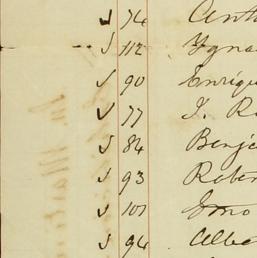 ✓ 74 Anth
✓ 112 Ygna
✓ 90 Enriqu
✓ 77 J. R
✓ 84 Benj
✓ 93 Rober
✓ 101
✓ 94 Albe